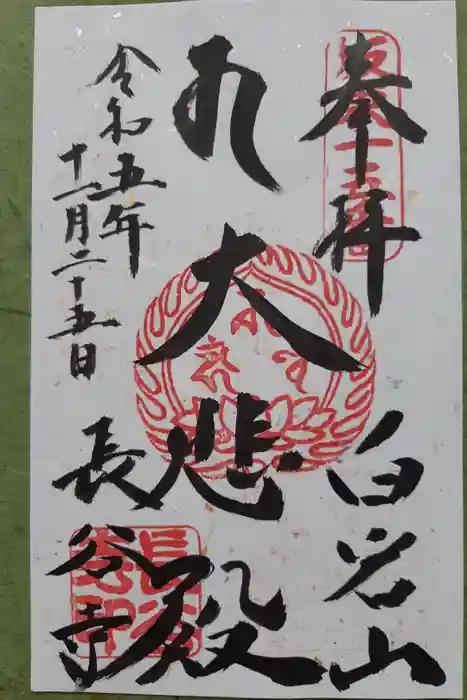 奉拝
坂東十五番
白岩山
大悲殿
令和五年
十一月二十五日
長谷寺
長谷寺印